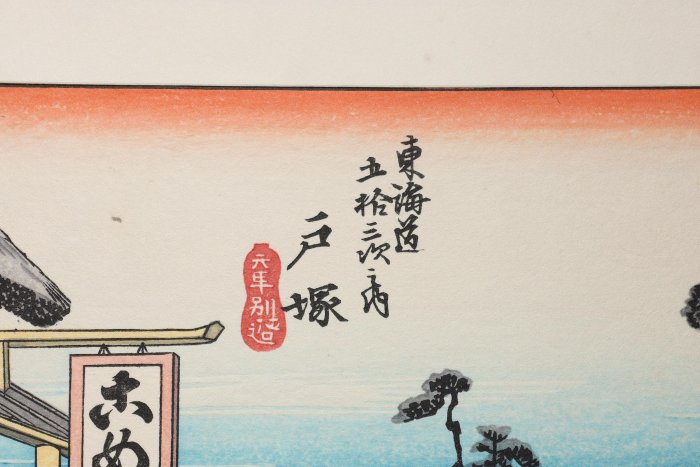 東海道
五拾三次之内
戸塚
元町別道
こめ